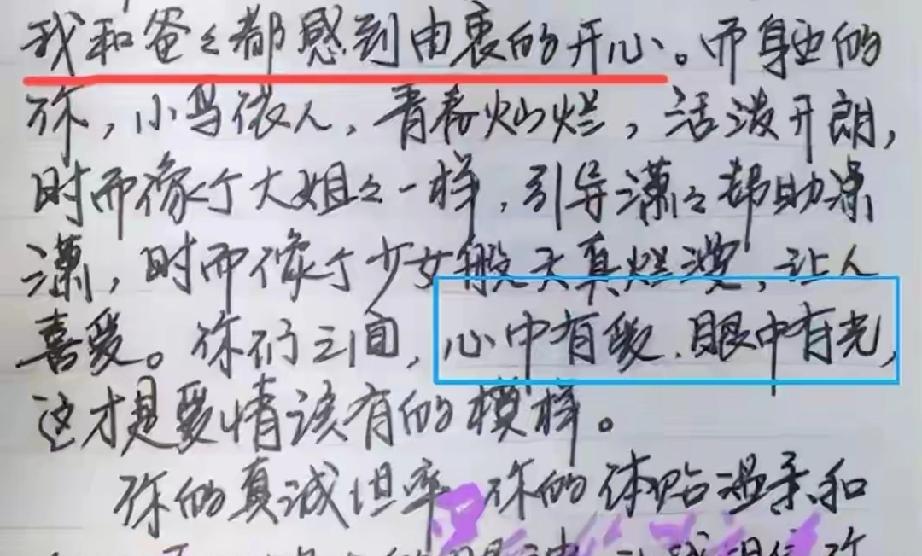 我和爸々都感到由衷的开心。而身边的
你，小鸟依人，青春灿烂，活泼开朗，
时而像个大姐々一样，引导潇々帮助潇
潇，时而像个少女般天真烂漫，让人
喜爱。你们之间，心中有爱、眼中有光，
这才是爱情该有的模样。
你的真诚坦率，你的体贴温柔和